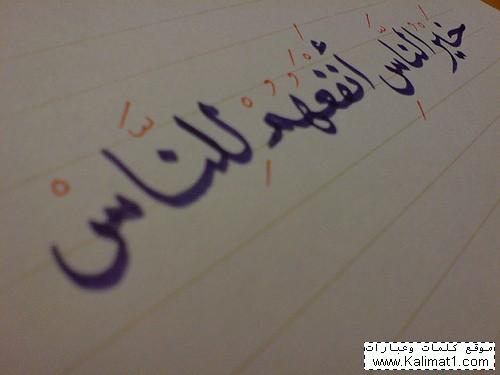 خير الناس أنفعهم للناس
موقع كلمات وعبارات
www.Kalimat1.com